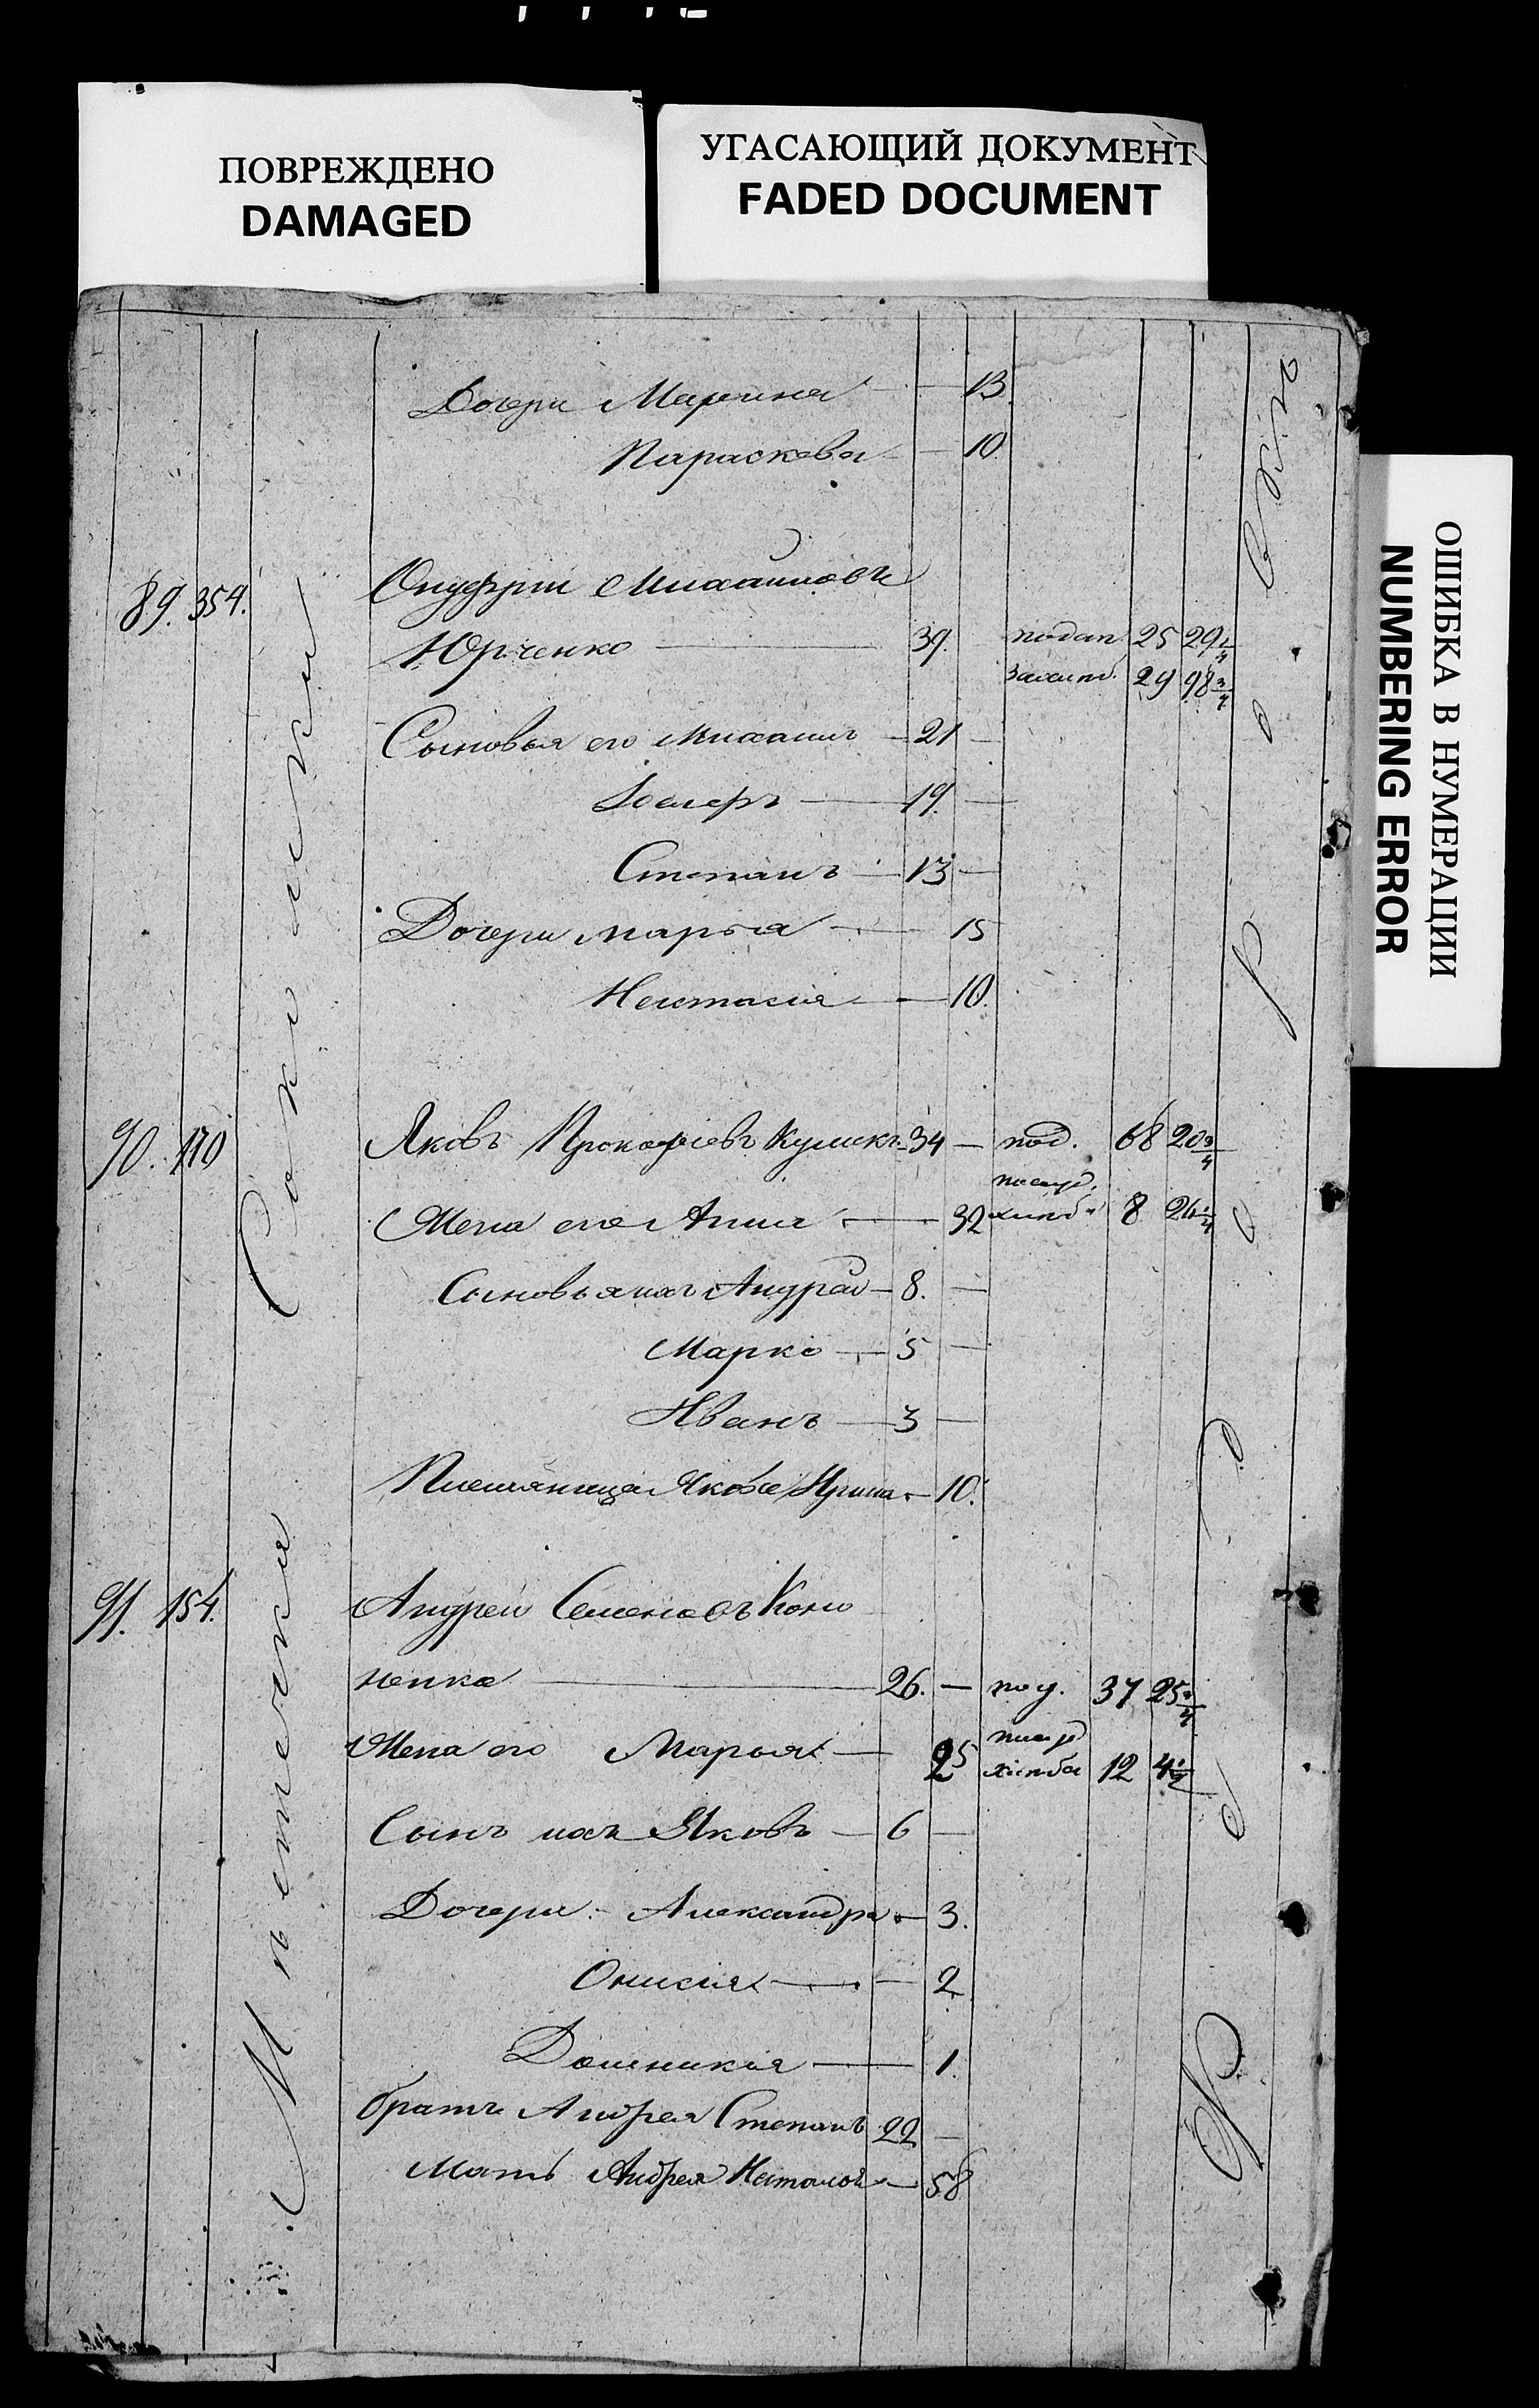 ПОВРЕЖДЕНО
DAMAGED
УГАСАЮЩИЙ ДОКУМЕНТ
FADED DOCUMENT
ОШИБКА В НУМЕРАЦИИ
NUMBERING ERROR
Дочери Марина — 13.
Параскева — 10.
89. 354. Онуфрій Михайловъ
Юрченко — 39. подат 25 29 1/4
За 29 98 3/4
Сыновья его Михаилъ — 21 —
19. —
Степанъ — 13 —
Дочери Марья — 15
Настасія — 10.
90. 170 Яковъ Прокофіевъ Куликъ 34 — под. 68 20 3/4
Жена его Анна — 32 хлѣба 8 24 1/4
Сыновья ихъ Андрей — 8. —
Марко — 5 —
Иванъ — 3 —
Племяница Якова Ирина — 10.
91. 154. Андрей Семеновъ Коно
ненко — 26. — под. 37 25 3/4
Жена его Марья — 25 хлѣба 12 4 1/2
Сынъ ихъ Яковъ — 6 —
Дочери Александра — 3.
Онисія — 2
Домникія — 1.
братъ Андрея Степанъ 22 —
Мать Андрея Наталья — 58